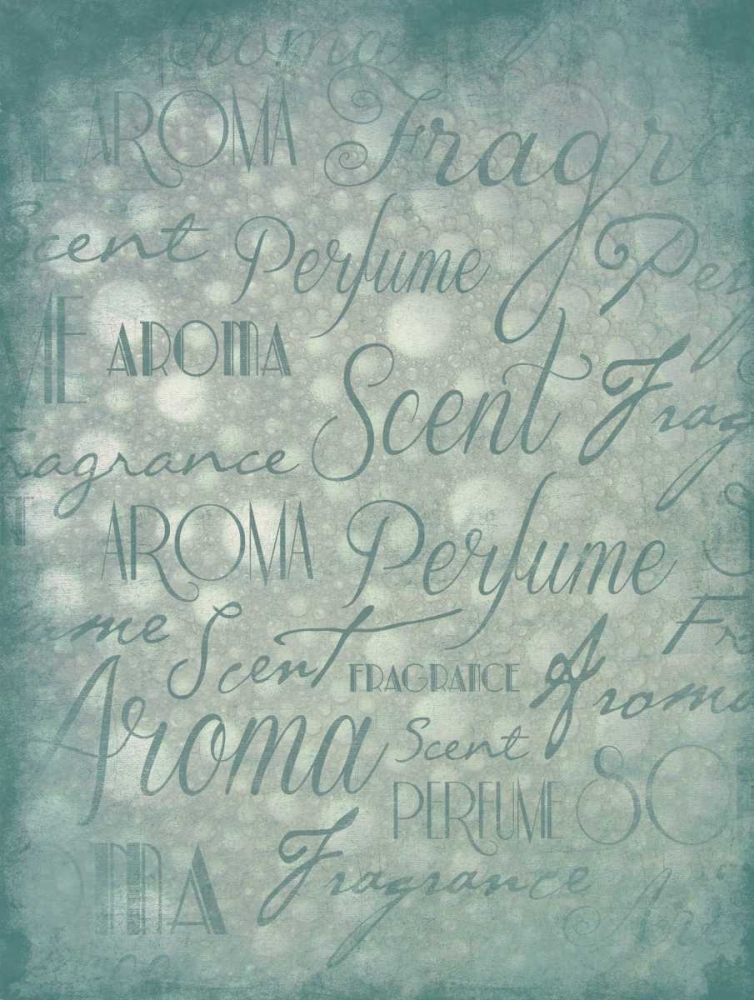 Aroma
AROMA Fragr
Scent Perfume Per
ME AROMA Scent Frag
ragrance
AROMA Perfume
ume Scent Fr
FRAGRANCE Aroma
Aroma Scent
PERFUME SC
MA Fragrance